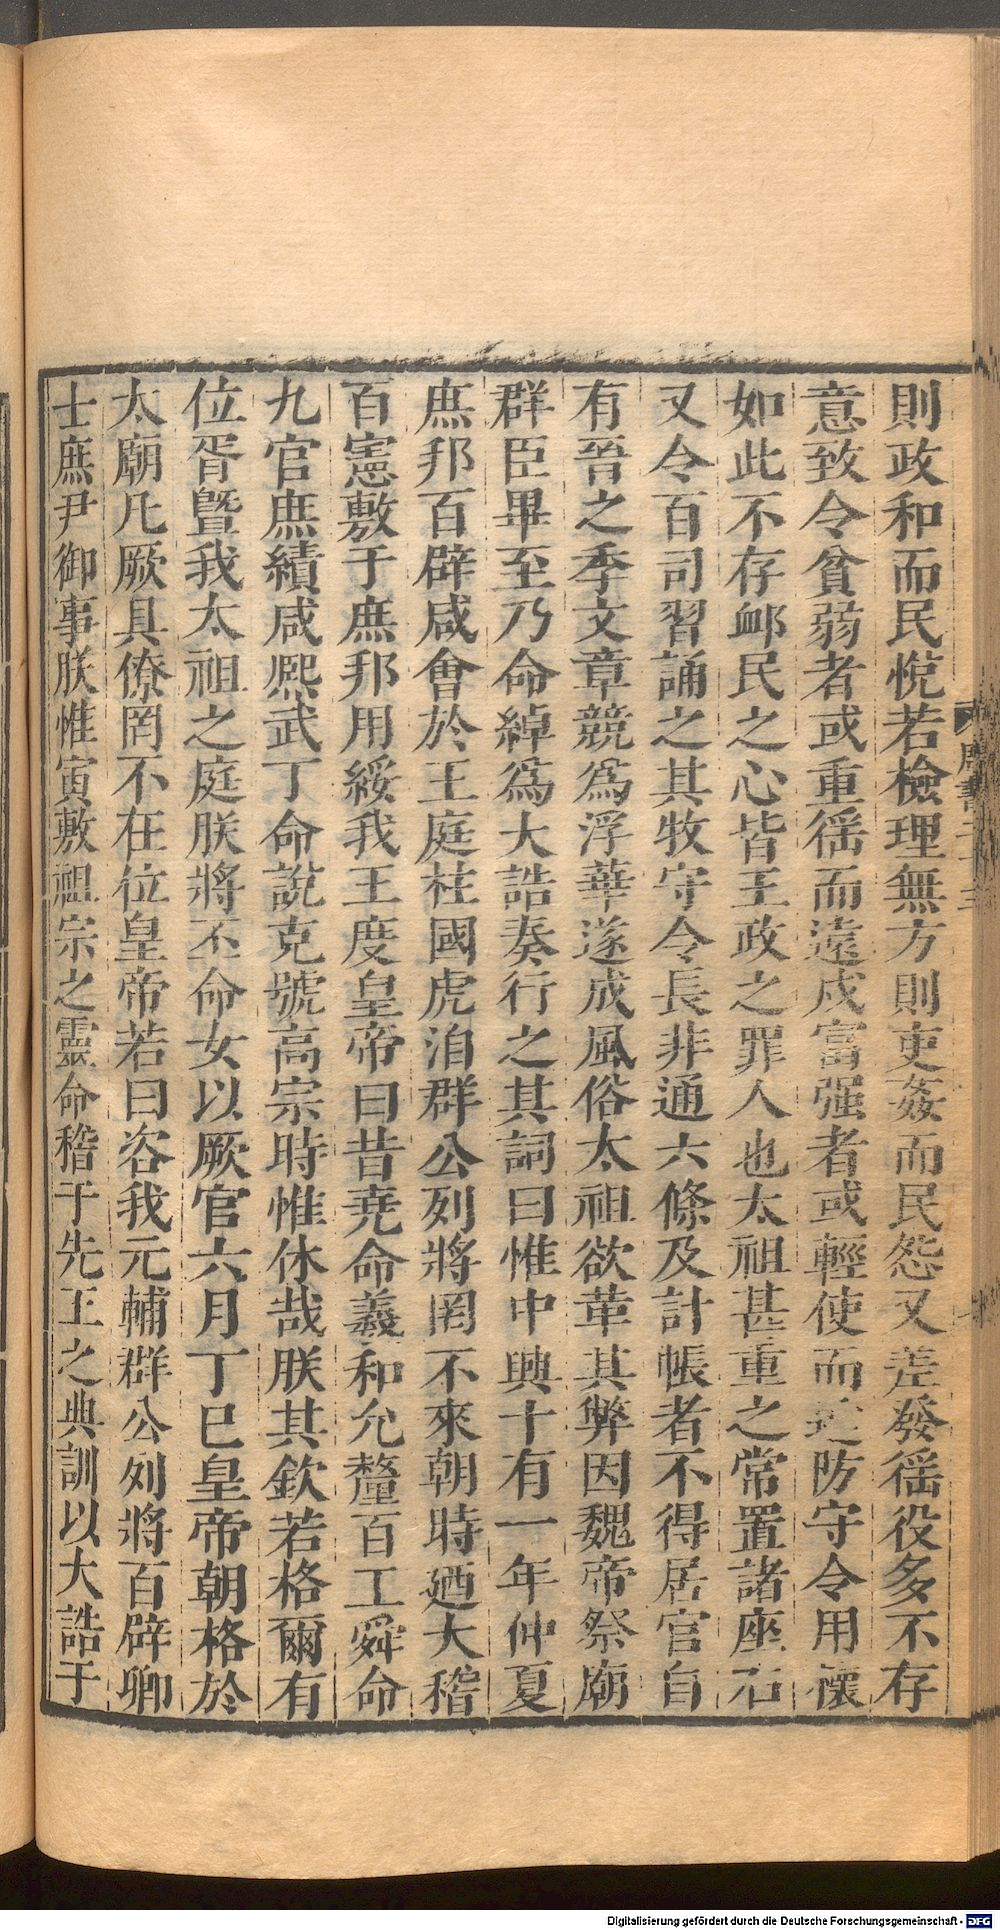 則政和而民悅若檢理無方則吏姦而民怨又差發徭役多不存
意致令貧弱者或重徭而遠戍富强者或輕使而近防守令用懷
如此不存卹民之心皆王政之罪人也太祖甚重之常置諸座右
又令百司習誦之其牧守令長非通六條及計帳者不得居官自
有晉之季文章競爲浮華遂成風俗太祖欲革其弊因魏帝祭廟
群臣畢至乃命綽爲大誥奏行之其詞曰惟中興十有一年仲夏
庶邦百辟咸會於王庭柱國虎洎群公列將罔不來朝時廼大稽
百憲敷于庶邦用綏我王度皇帝曰昔堯命羲和允釐百工舜命
九官庶績咸熙武丁命說克號高宗時惟休哉朕其欽若格爾有
位胥曁我太祖之庭朕將丕命女以厥官六月丁巳皇帝朝格於
太廟凡厥具僚罔不在位皇帝若曰咨我元輔群公列將百辟卿
士庶尹御事朕惟寅敷祖宗之靈命稽于先王之典訓以大誥于
周書二十三
Digitalisierung gefördert durch die Deutsche Forschungsgemeinschaft - DFG